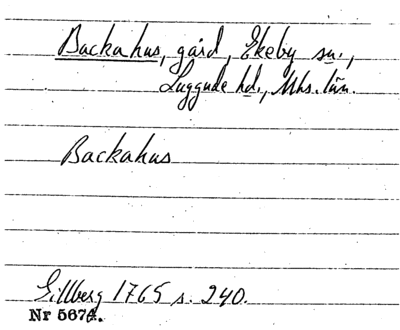 Backahus, gård, Ekeby sn.,
Luggude hd., Mhs. län.
Backahus
Gillberg 1765 s. 240.
Nr 5674.